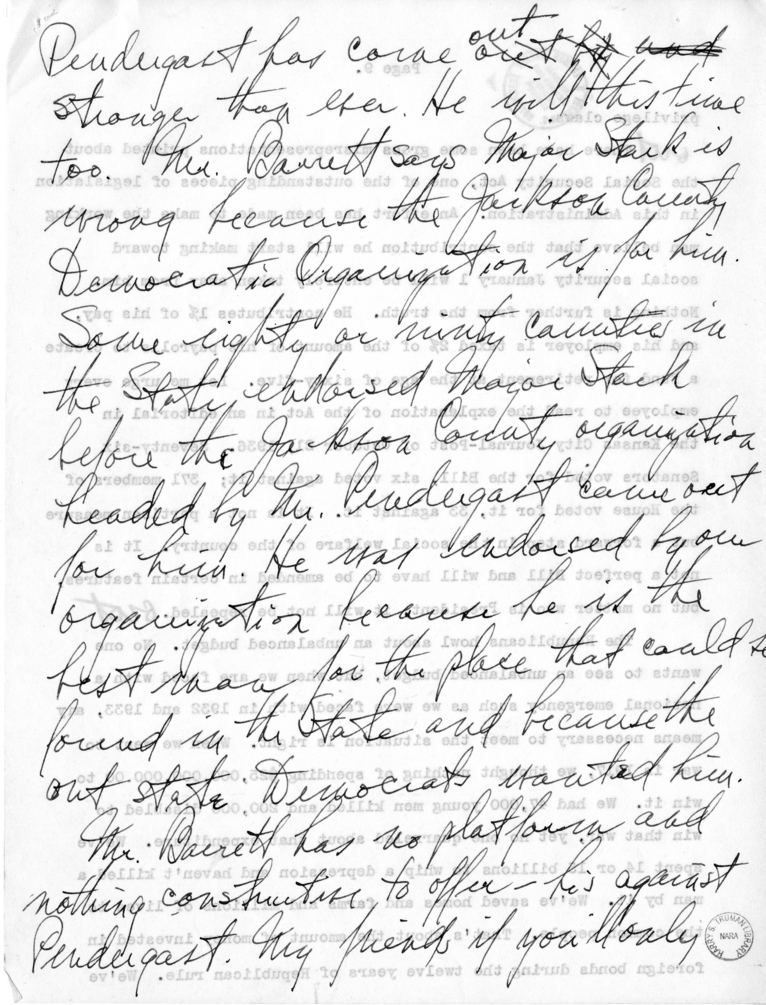 Pendergast has come out out by and
stronger than ever. He will this time
too. Mr. Barrett says Major Stark is
wrong because the Jackson County
Democratic Organization is for him.
Some eighty or ninty counties in
the State endorsed Major Stark
before the Jackson County organization
headed by Mr. Pendergast came out
for him. He was endorsed by our
organization because he is the
best man for the place that could be
found in the State and because the
out state Democrats wanted him.
Mr. Barrett has no platform and
nothing constructive to offer - his against
Pendergast. My friends if you'll only
HARRY S. TRUMAN LIBRARY
NARA